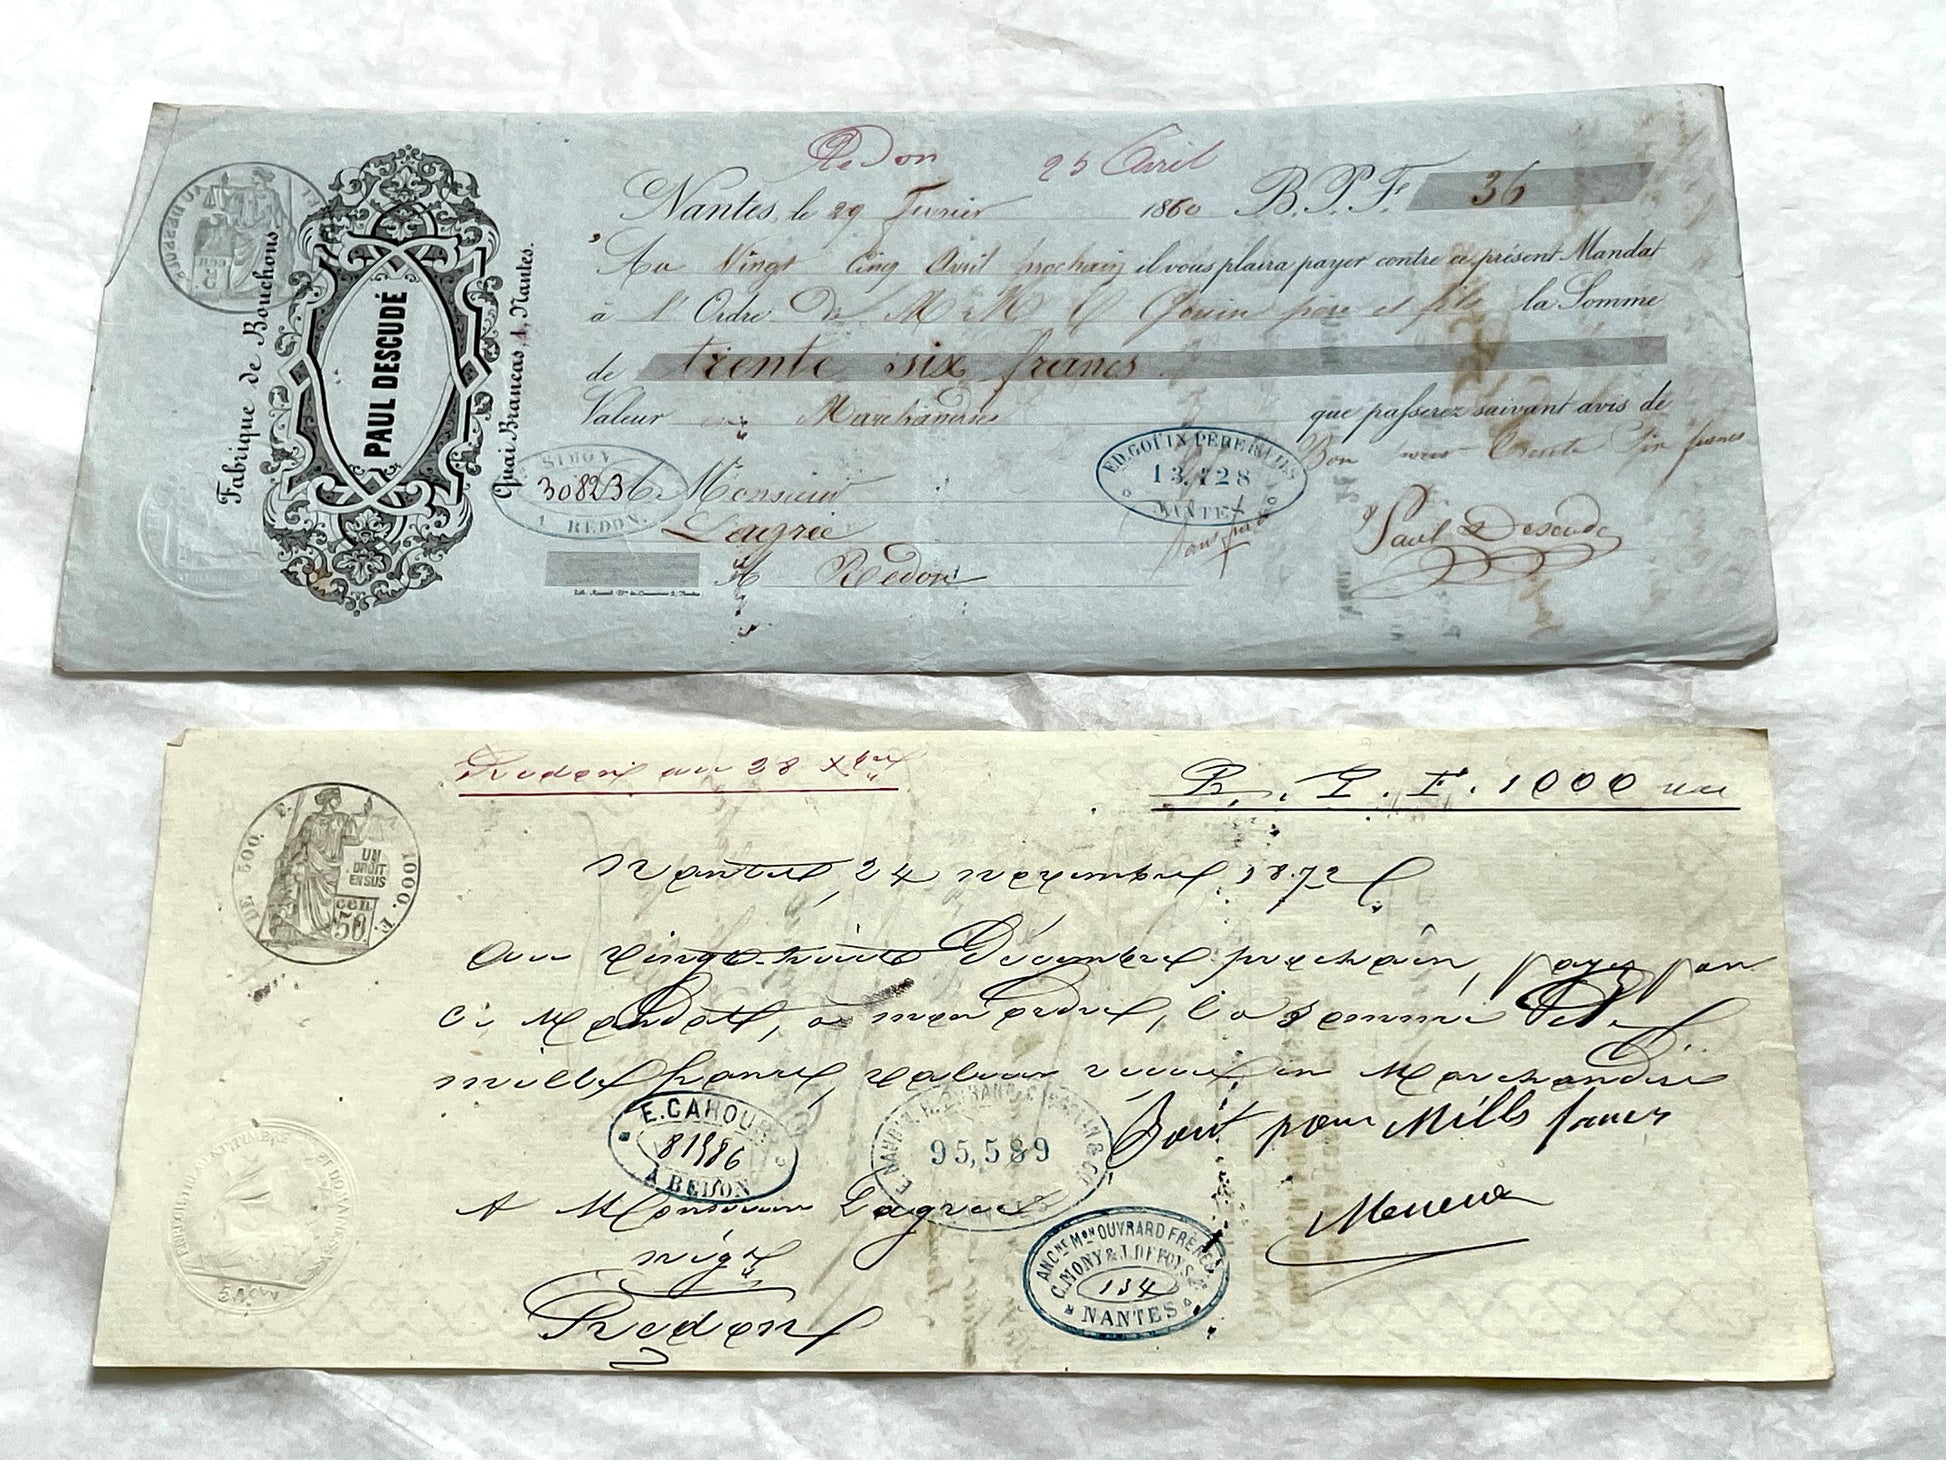 Redon 25 Avril
Nantes, le 29 Fevrier 1860 B.P.F. 36
Au Vingt Cinq Avril prochain il vous plaira payer contre ce présent Mandat
à l'Ordre de M M Ed Gouin père et fils la Somme
de trente six francs
Valeur en Marchandises que passerez suivant avis de
Bon pour Trente Six francs
Monsieur
Lagrée
A Redon
Paul Descudé
Fabrique de Bouchons
PAUL DESCUDÉ
Quai Brancas, 4, Nantes.
SIMON
308236
A REDON.
ED. GOUIN PÈRE & FILS
13,128
NANTES
Redon au 28 Xbre
B. P. F. 1000
Nantes, 24 novembre 1872
Au vingt-huit Décembre prochain, payez par
ce Mandat, à mon ordre, la somme de
mille francs, valeur reçue en Marchandises
Bon pour Mille francs
A Monsieur Lagrée
nég.
Redon
DE 500. F. À 1000. F.
UN
DROIT
EN SUS
cen.
50
E. CAHOUR
81986
A REDON
95,589
ANCNE MON OUVRARD FRÈRES
134
NANTES